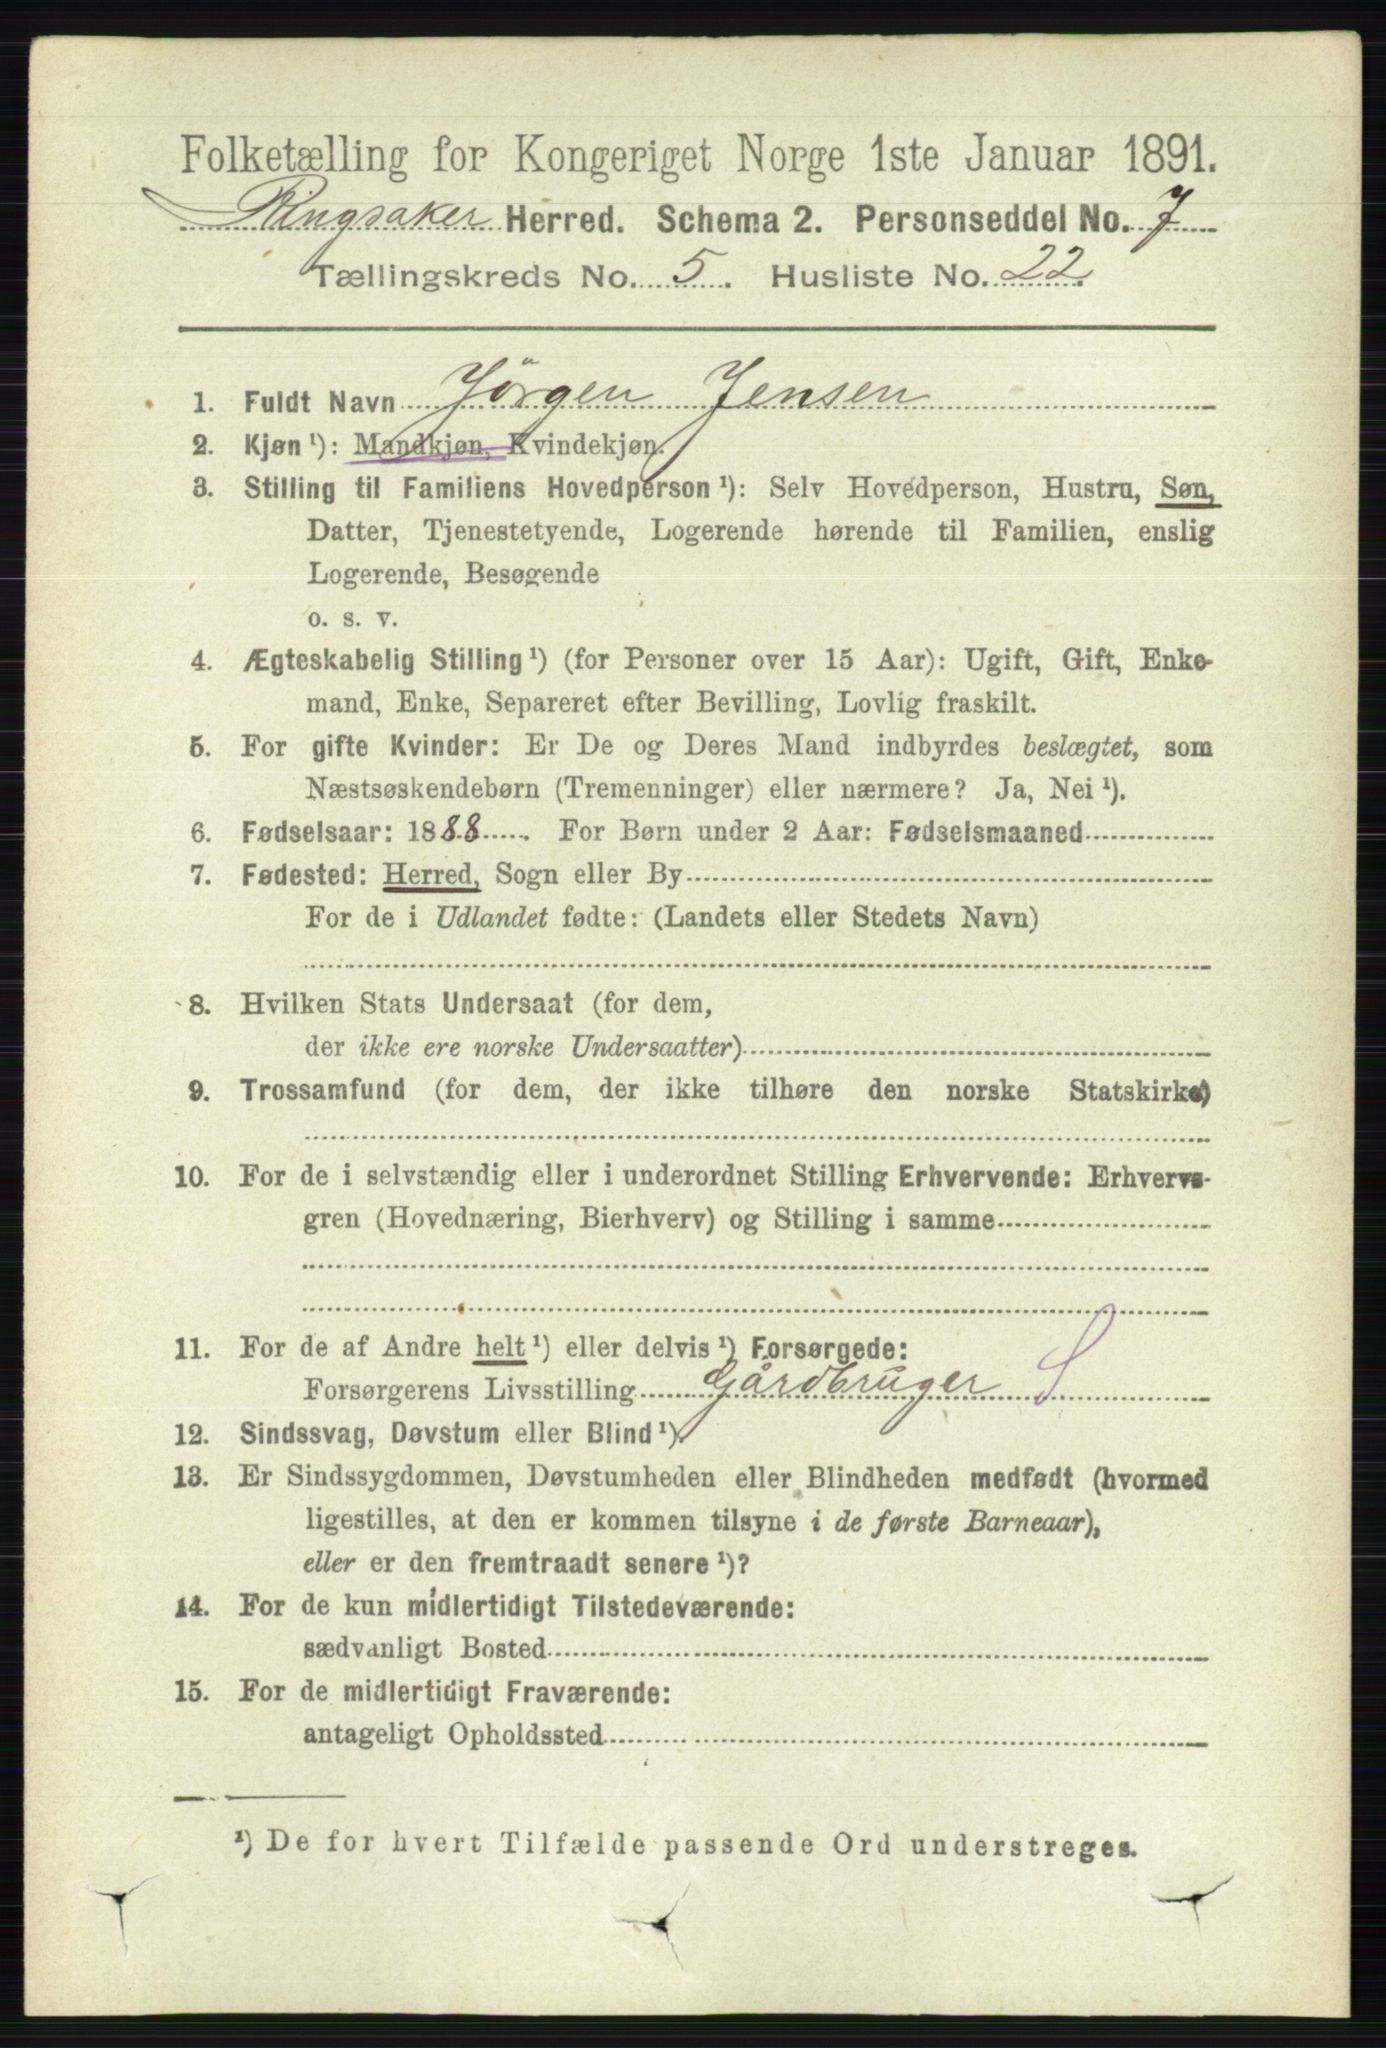 Folketælling for Kongeriget Norge 1ste Januar 1891.
Ringsaker Herred. Schema 2. Personseddel No. 7
Tællingskreds No. 5. Husliste No. 22.
1. Fuldt Navn Jörgen Jensen
2. Kjøn ¹): Mandkjøn, Kvindekjøn.
3. Stilling til Familiens Hovedperson ¹): Selv Hovedperson, Hustru, Søn,
Datter, Tjenestetyende, Logerende hørende til Familien, enslig
Logerende, Besøgende
o. s. v.
4. Ægteskabelig Stilling ¹) (for Personer over 15 Aar): Ugift, Gift, Enke-
mand, Enke, Separeret efter Bevilling, Lovlig fraskilt.
5. For gifte Kvinder: Er De og Deres Mand indbyrdes beslægtet, som
Næstsøskendebørn (Tremenninger) eller nærmere? Ja, Nei ¹).
6. Fødselsaar: 1888. For Børn under 2 Aar: Fødselsmaaned
7. Fødested: Herred, Sogn eller By
For de i Udlandet fødte: (Landets eller Stedets Navn)
8. Hvilken Stats Undersaat (for dem,
der ikke ere norske Undersaatter)
9. Trossamfund (for dem, der ikke tilhøre den norske Statskirke)
10. For de i selvstændig eller i underordnet Stilling Erhvervende: Erhvervs-
gren (Hovednæring, Bierhverv) og Stilling i samme
11. For de af Andre helt ¹) eller delvis ¹) Forsørgede:
Forsørgerens Livsstilling Gårdbruger S
12. Sindssvag, Døvstum eller Blind ¹).
13. Er Sindssygdommen, Døvstumheden eller Blindheden medfødt (hvormed
ligestilles, at den er kommen tilsyne i de første Barneaar),
eller er den fremtraadt senere ¹)?
14. For de kun midlertidigt Tilstedeværende:
sædvanligt Bosted
15. For de midlertidigt Fraværende:
antageligt Opholdssted
¹) De for hvert Tilfælde passende Ord understreges.